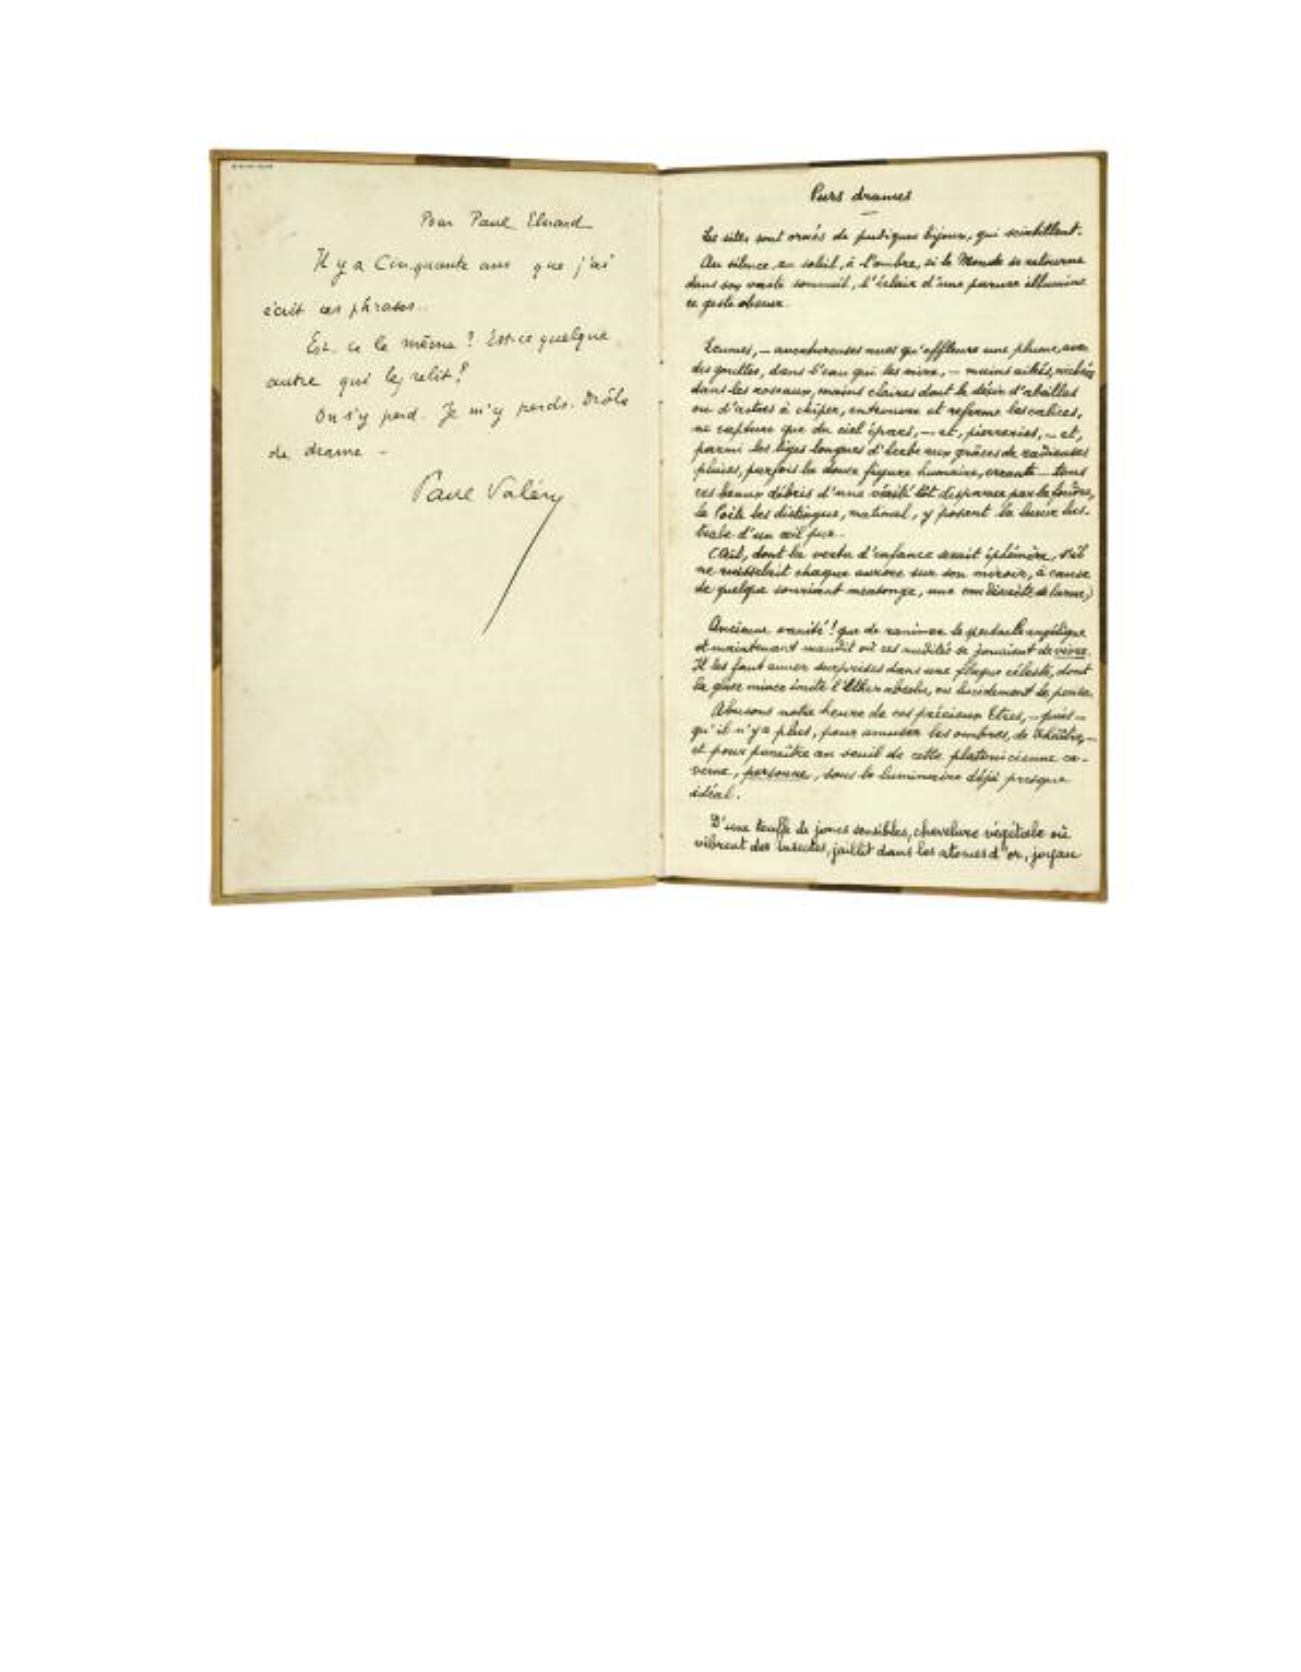 Pour Paul Eluard
Il y a Cinquante ans que j'ai
écrit ces phrases..
Est-ce le même ? Est-ce quelque
autre qui les relit ?
On s'y perd. Je m'y perds. Drôle
de drame -
Paul Valéry
Purs drames
Les sites sont ornés de pudiques bijoux, qui scintillent.
Au silence, au soleil, à l'ombre, si le Monde se retourne
dans son vaste sommeil, l'éclair d'une parure illumine
ce geste obscur.
Ecumes, — aventureuses nues qu'effleure une plume, avec
des gouttes, dans l'eau qui les mire, — mains ailées, nichées
dans les roseaux, mains claires dont le désir d'abeilles
ou d'astres à chiper, entrouvre et referme les calices,
ne capture que du ciel épars, — et, pierreries, — et,
parmi les tiges longues d'herbe aux grâces de radieuses
pluies, parfois la douce figure humaine, errante — tous
ces beaux débris d'une vérité tôt disparue par la foudre,
le Poète les distingue, matinal, y posant la lueur lus-
trale d'un œil pur.
(Œil, dont la vertu d'enfance serait éphémère, s'il
ne ruisselait chaque aurore sur son miroir, à cause
de quelque souvenant mensonge, une eau discrète de larme)
Ancienne vanité ! que de ranimer le spectacle angélique
et maintenant maudit où ces nudités se jouaient de vivre.
Il les faut aimer surprises dans une flaque céleste, dont
la glace mince imite l'Ether absolu, où lucidement se pense.
Abusons notre heure de ces précieux Etres, — puis —
qu'il n'y a plus, pour amuser les ombres, de théâtre, —
et pour paraître au seuil de cette platonicienne ca-
verne, personne, sous le luminaire déjà presque
idéal.
D'une touffe de joncs sensibles, chevelure végétale où
vibrent des insectes, jaillit dans les atomes d'or, joyau